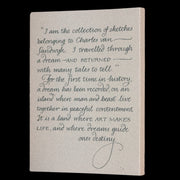 "I am the collection of sketches
belonging to Charles van
Sandwyk. I travelled through
a dream—AND RETURNED—
with many tales to tell."
For the first time in history,
a dream has been recorded, on an
island where man and beast live
together in peaceful contentment.
It is a land where ART MAKES
LIFE, and where dreams guide
ones destiny.